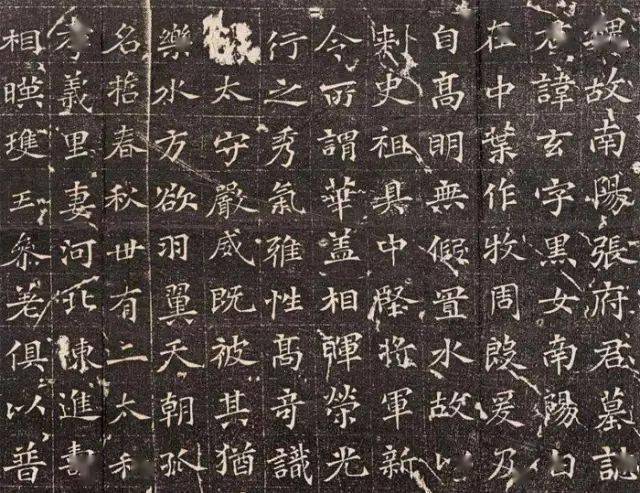 魏故南陽張府君墓誌
君諱玄字黑女南陽白
在中葉作牧周殷爰及
自高明無假置水故以
刺史祖具中堅將軍新
今所謂華盖相暉榮光
行之秀氣雅性高奇識
太守嚴威既被其猶
樂水方欲羽翼天朝孤
名哲春秋卅有二太和
孝義里妻河北陳進壽
相暎瓊玉參差俱以普